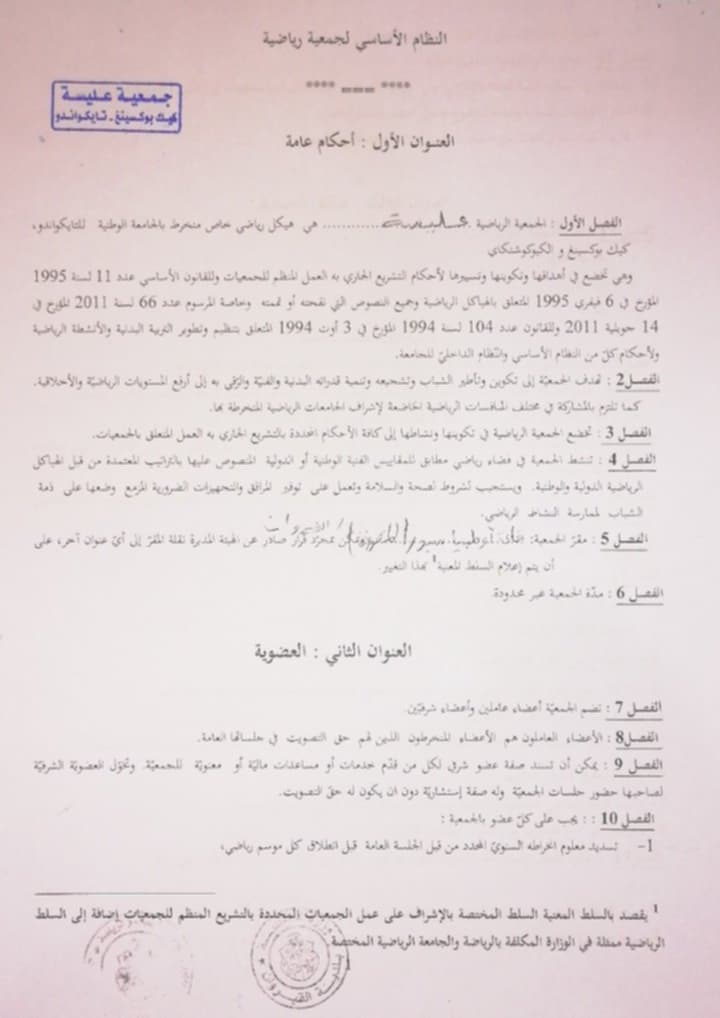 النظام الأساسي لجمعية رياضية
**** ___ ****
جمعية عليسة
كيك بوكسينغ - تايكواندو
العنوان الأول : أحكام عامة
الفصل الأول : الجمعية الرياضية عليسة........... هي هيكل رياضي خاص منخرط بالجامعة الوطنية للتايكواندو،
كيك بوكسينغ و الكيوكوشنكاي
وهي تخضع في أهدافها وتكوينها وتسييرها لأحكام التشريع الجاري به العمل المنظم للجمعيات وللقانون الأساسي عدد 11 لسنة 1995
المؤرخ في 6 فيفري 1995 المتعلق بالهياكل الرياضية وجميع النصوص التي نقحته أو تممته وخاصة المرسوم عدد 66 لسنة 2011 المؤرخ في
14 جويلية 2011 وللقانون عدد 104 لسنة 1994 المؤرخ في 3 أوت 1994 المتعلق بتنظيم وتطوير التربية البدنية والأنشطة الرياضية
ولأحكام كلّ من النظام الأساسي والنّظام الداخليّ للجامعة.
الفصل2 : تهدف الجمعيّة إلى تكوين وتأطير الشباب وتشجيعه وتنمية قدراته البدنية والفنيّة والرّقي به إلى أرفع المستويات الرياضيّة والأخلاقية.
كما تلتزم بالمشاركة في مختلف المنافسات الرياضية الخاضعة لإشراف الجامعات الرياضية المنخرطة بها.
الفصل 3 : تخضع الجمعية الرياضية في تكوينها ونشاطها إلى كافة الأحكام المحددة بالتشريع الجاري به العمل المتعلق بالجمعيات.
الفصل 4 : تنشط الجمعية في فضاء رياضي مطابق للمقاييس الفنية الوطنية أو الدولية المنصوص عليها بالتراتيب المعتمدة من قبل الهياكل
الرياضية الدولية والوطنية. ويستجيب لشروط لصحة والسلامة وتعمل على توفير المرافق والتجهيزات الضرورية المزمع وضعها على ذمة
الشباب لممارسة النشاط الرياضي.
الفصل 5 : مقرّ الجمعية: بمجرّد قرار صادر عن الهيئة المديرة نقلة المقرّ إلى أيّ عنوان آخر، على
أن يتم إعلام السلط المعنية¹ بهذا التغيير.
الفصل 6 : مدّة الجمعية غير محدودة.
العنوان الثاني : العضوية
الفصل 7 : تضم الجمعيّة أعضاء عاملين وأعضاء شرفيّين.
الفصل8 : الأعضاء العاملون هم الأعضاء المنخرطون الذين لهم حق التصويت في جلساتها العامة.
الفصل 9 : يمكن أن تسند صفة عضو شرفي لكل من قدّم خدمات أو مساعدات ماليّة أو معنويّة للجمعيّة. وتخوّل العضويّة الشرفيّة
لصاحبها حضور جلسات الجمعيّة وله صفة إستشاريّة دون ان يكون له حق التصويت.
الفصل 10 : : يجب على كلّ عضو بالجمعية :
1- تسديد معلوم انخراطه السنويّ المحدد من قبل الجلسة العامة قبل انطلاق كل موسم رياضي،
¹ يقصد بالسلط المعنية السلط المختصة بالإشراف على عمل الجمعيات المحددة بالتشريع المنظم للجمعيات إضافة إلى السلط
الرياضية ممثلة في الوزارة المكلفة بالرياضة والجامعة الرياضية المختصة.
بلدية القيروان